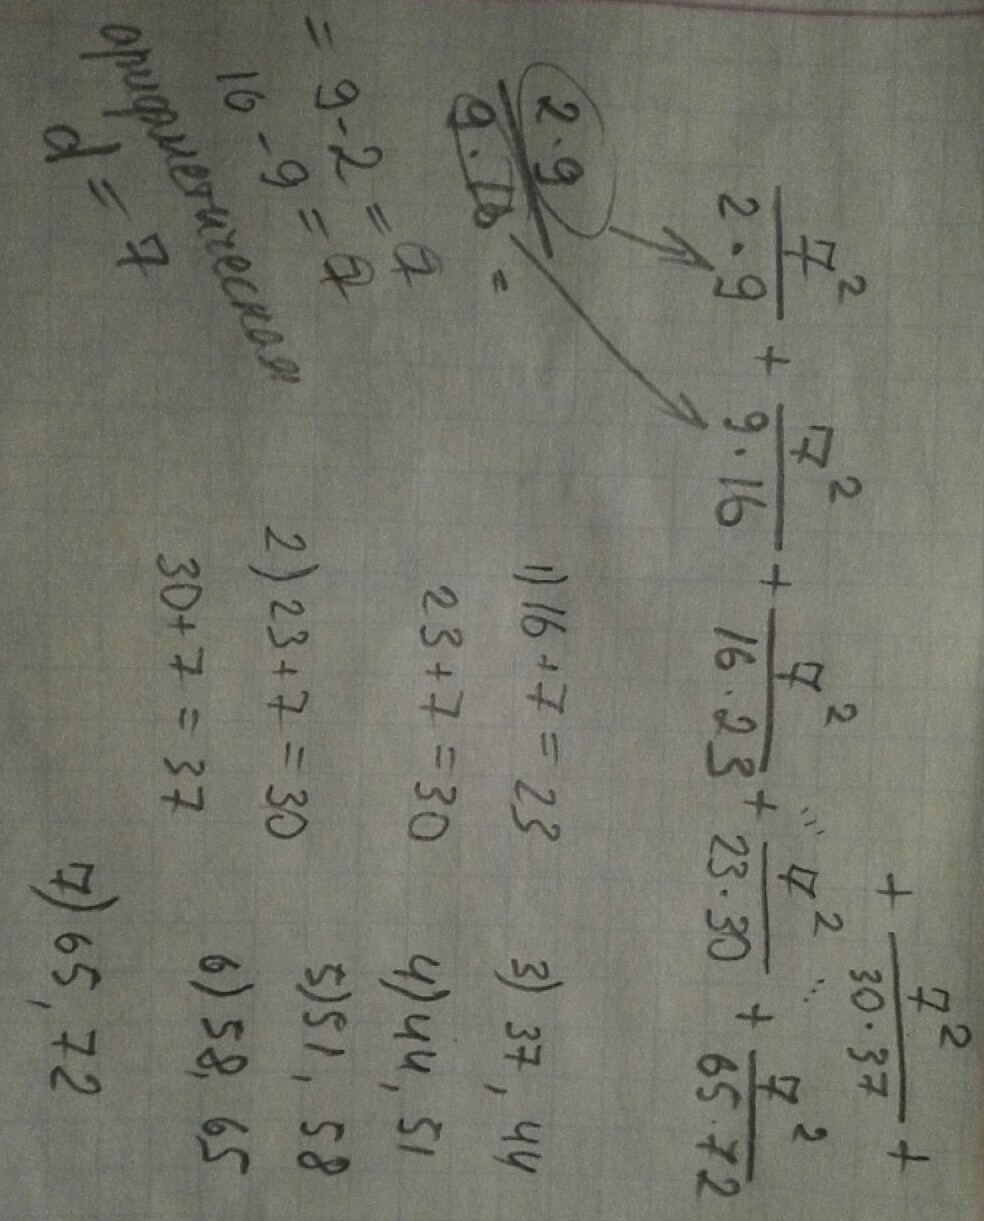 + 7²/(30·37) +
7²/(2·9) + 7²/(9·16) + 7²/(16·23) + ... 7²/(23·30) ... + 7²/(65·72)
2·9
9·16 =
= 9-2=7
16-9=7
арифметическая
d=7
1) 16+7=23
23+7=30
2) 23+7=30
30+7=37
3) 37, 44
4) 44, 51
5) 51, 58
6) 58, 65
7) 65, 72